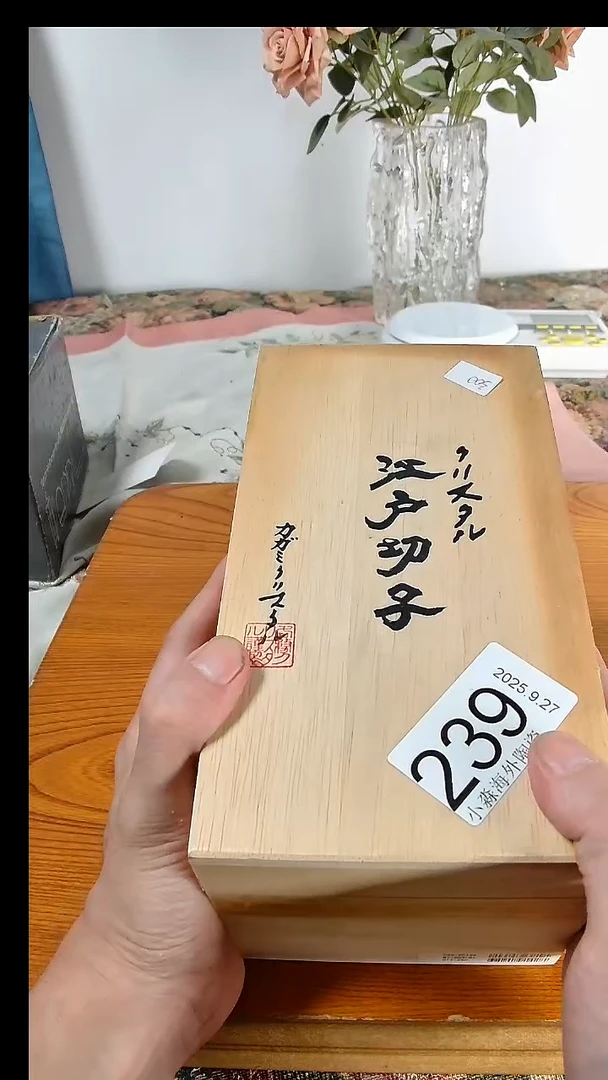 300
クリスタル
江戸切子
カガミクリスタル
2025.9.27
239
小森海外陶瓷